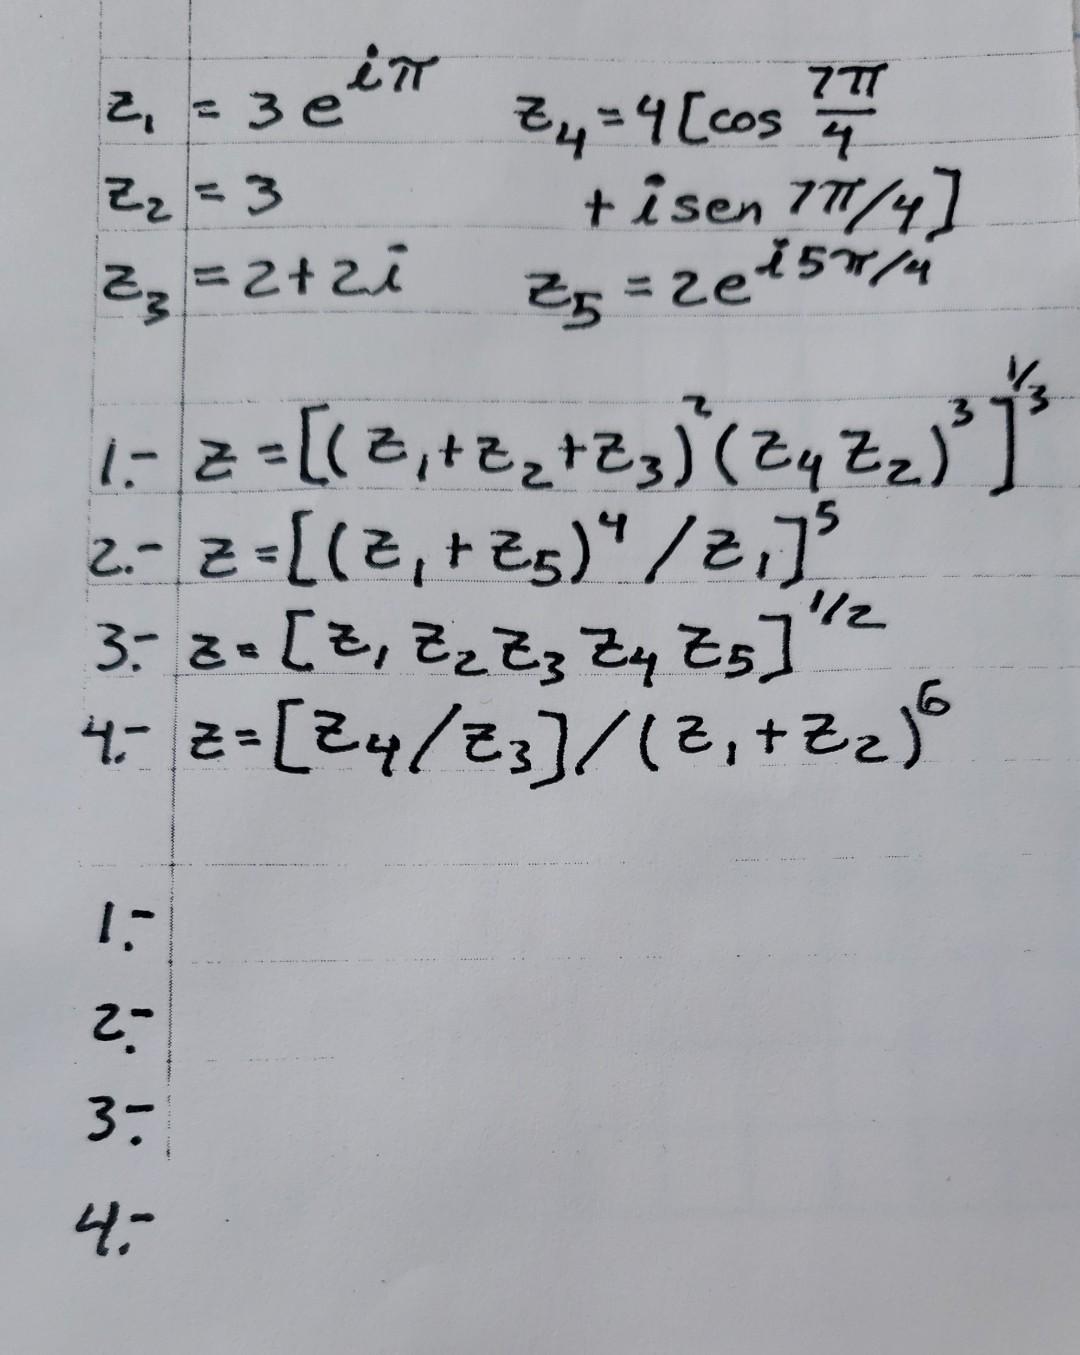 z₁ = 3e^{iπ}
z₂ = 3
z₃ = 2+2i
z₄ = 4[cos 7π/4
+ i sen 7π/4]
z₅ = 2e^{i5π/4}
1.- z = [(z₁+z₂+z₃)²(z₄z₂)³]^{1/3}
2.- z = [(z₁+z₅)⁴/z₁]⁵
3.- z = [z₁ z₂ z₃ z₄ z₅]^{1/2}
4.- z = [z₄/z₃]/(z₁+z₂)⁶
1.-
2.-
3.-
4.-